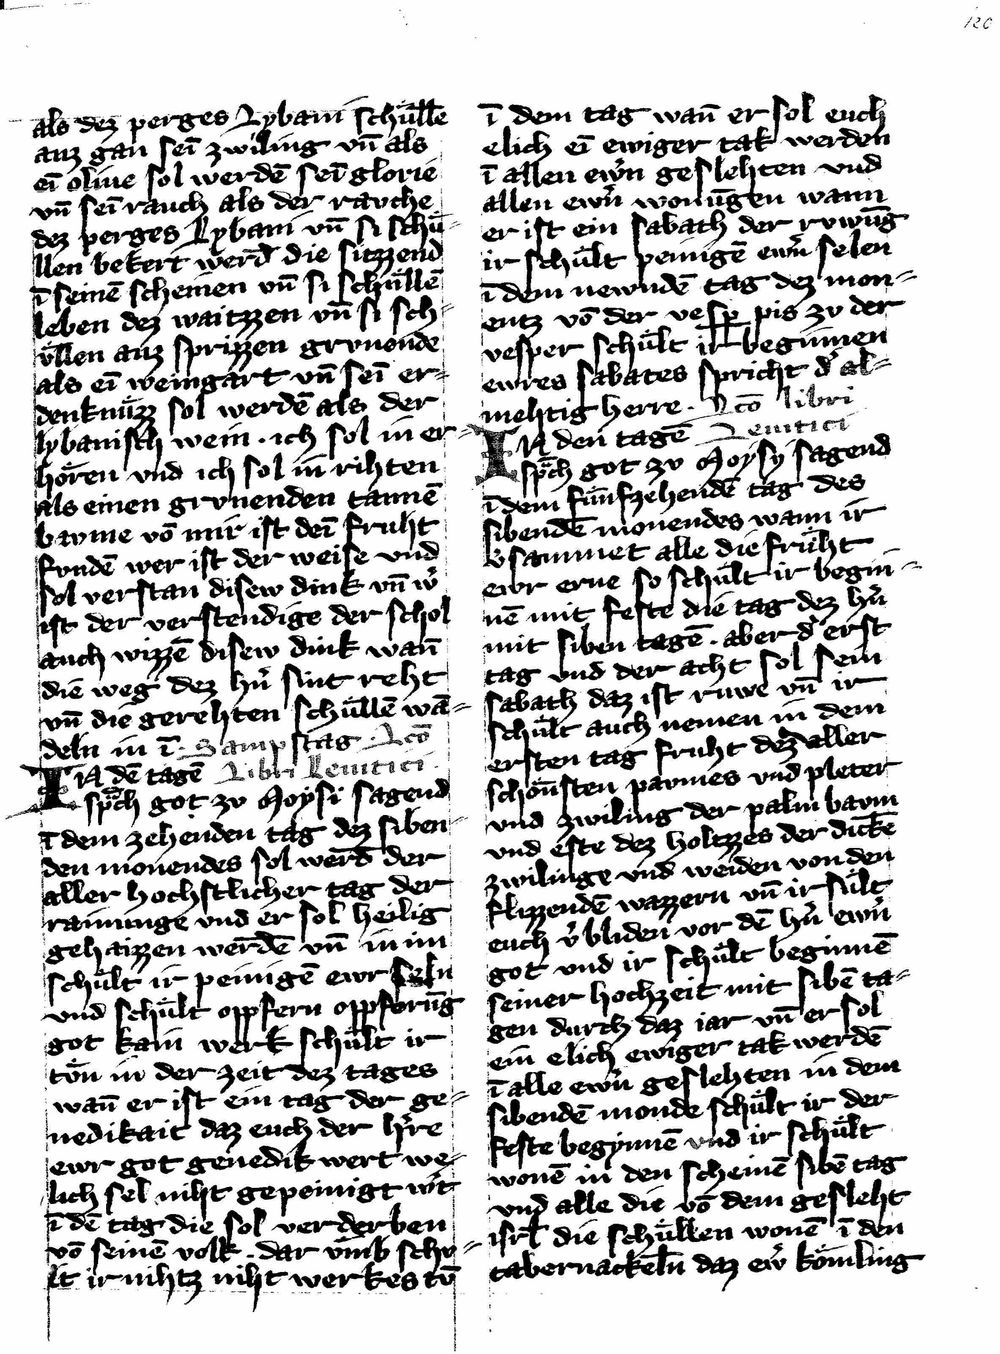 120
als dez perges Lybani schüllē
auz gan seī zwiling vn̄ als
eī oliue sol werdē seī glorie
vn̄ seī rauch als der rauche
dez perges Lybani vn̄ si schü-
llen bekert werd̄ die sitzzend
ī seinē scheinen vn̄ si schüllē
leben dez waitzzen vn̄ si sch-
üllen auz sprizzen grvnonde
als eī weingart vn̄ seī er-
denknüzz sol werdē als der
lybanisch wein. ich sol in er-
hören vnd ich sol in rihten
als einen grvnenden tannē
bavme vō mir ist deī fruht
fvndē wer ist der weise vnd
sol verstan disew dink vn̄ w̓
ist der verstendige der schol
auch wizzē disew dink wan̄
die weg dez hn̓ sint reht
vn̄ die gerehten schüllē wā-
deln in ī. Sampstag. Lc̄o
IN dē tagē Libri Leuitici.
sp̄ch got zv Moysi sagend
ī dem zehenden tag dez siben-
den monendes sol werd̄ der
aller hochstlicher tag der
rainunge vnd er sol heilig
gehaizzen werdē vn̄ in im
schült ir peinigē ewr seln
vnd schült oppfern oppferūg
got kain werk schült ir
tön in der zeit dez tages
wan̄ er ist ein tag der ge-
nedikait daz euch der hr̄re
ewr got genedik wert we-
lich sel niht gepeinigt wit
ī dē tag die sol verderben
vō seinē volk. dar vmb schv-
lt ir nihtz niht werkes tv̄
ī dem tag wan̄ er sol euch
elich eī ewiger tak werden
ī allen ewn̓ geslehten vnd
allen ewn̓ wonūgen wann
er ist ein sabach der rvwūg
ir schült peinigē ewn̓ selen
ī dem newndē tag dez mon-
entz vō der vesp̄ pis zv der
vesper schült ir beginnen
ewres sabates spricht d̓ al-
mehtig herre. Lc̄o libri
IN den tagē Leuitici
sp̄ch got zv Moysy sagend
ī dem fünfzehendē tag des
sibendē monendes wann ir
v̓sammet alle die früht
ewr erne so schült ir begin-
nē mit feste die tag dez hn̓
mit siben tagē. aber d̓ erst
tag vnd der acht sol sein
sabath daz ist ruwe vn̄ ir
schült auch nemen in dem
ersten tag fruht dez aller
schönsten pavmes vnd pleter
vnd zwiling der palm bavm
vnd este dez holtzzes der dickē
zwilinge vnd weiden von den
flizzendē wazzern vn̄ ir sült
euch v̓bliden vor dē hn̓ ewn̓
got vnd ir schült beginnē
seiner hochzeit mit sibē ta-
gen durch daz iar vn̄ er sol
ein elich ewiger tak werdē
ī alle ewn̓ geslehten in dem
sibendē monde schült ir der
feste begynnē vnd ir schült
wonē in den scheinē sibē tag
vnd alle die vō dem gesleht
isrl̄ die schüllen wonē ī den
tabernackeln̄ daz ew̓ kömling